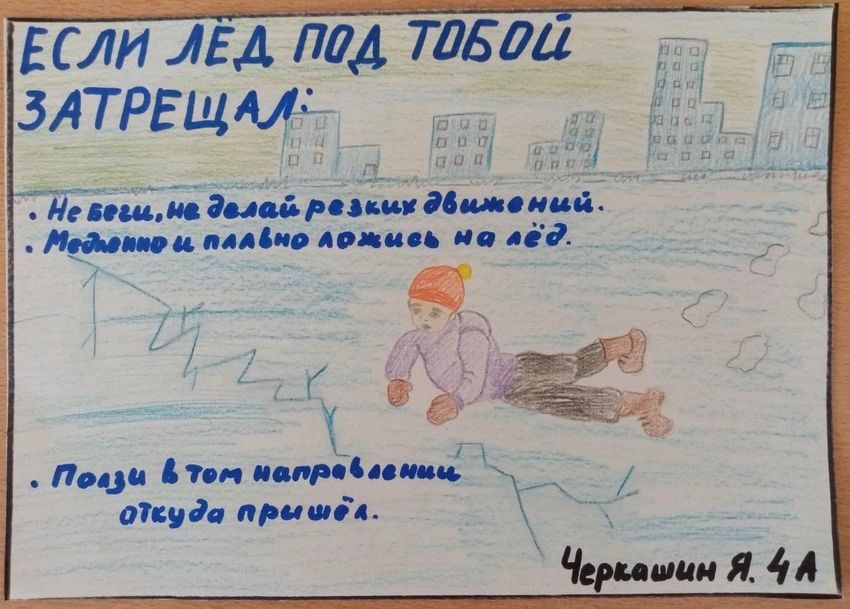 ЕСЛИ ЛЁД ПОД ТОБОЙ
ЗАТРЕЩАЛ:
• Не беги, не делай резких движений.
• Медленно и плавно ложись на лёд.
• Ползи в том направлении
откуда пришёл.
Черкашин Я. 4 А